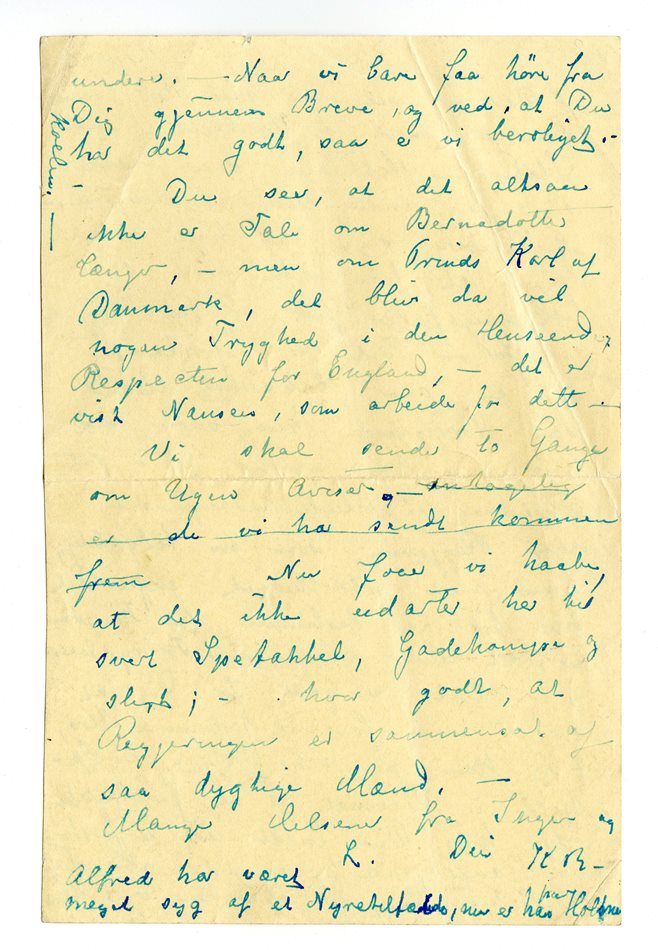 undere. — Naar vi bare faa høre fra
Dig gjennem Breve, og ved, at Du
har det godt, saa er vi beroliget. –
Du seer, at det altsaa
ikke er Tale om Bernadotte
længer, – men om Prinds Karl af
Danmark, det blir da vel
nogen Tryghed i den Henseende,
Respecten for England, – det er
vist Nansen, som arbeide for dette –
Vi skal sende to Gange
om Ugen Aviser, – antagelig
er de vi har sendt kommen
frem Nu faar vi haabe,
at det ikke udarter her til
svert Spetakkel, Gadekampe og
sligt; – hvor godt, at
Regjeringen er sammensat af
saa dygtige Mænd. —
Mange Helsener fra Inger og
L. Din
Alfred har været
meget syg af et Nyretilfælde, nu er han paa